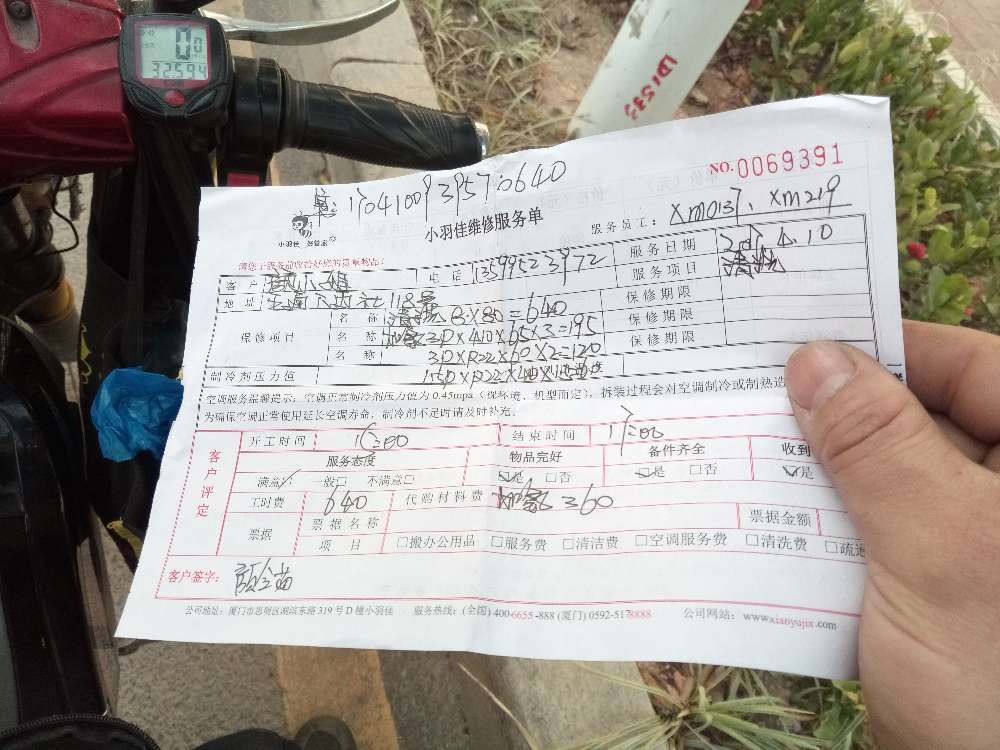 00
32.594
LD1533
NO.0069391
单: 1704100939570640
小羽佳 好管家
小羽佳维修服务单
服务员工: Xm0137、Xm219
请您于服务前收拾好您的贵重物品:
客户 小姐 电话 13599523972 服务日期 4.10
地址 118号 服务项目 清洗
保修项目 名称 清洗 8×80=640 保修期限
名称 加氟 3P×410×65×3=195 保修期限
名称 3P×R22×60×2=120 保修期限
制冷剂压力值 1.5P×R22×
空调服务温馨提示: 空调正常制冷剂压力值为 0.45mpa (视环境、机型而定), 拆装过程会对空调制冷或制热造
为确保空调正常使用延长空调寿命, 制冷剂不足时请及时补充。
客户评定 开工时间 16:00 结束时间 17:00
服务态度 物品完好 备件齐全 收到
满意☑ 一般□ 不满意□ ☑是 □否 ☑是 □否 ☑是
工时费 640 代购材料费 加氟 360
票据 票据名称 票据金额
项目 □搬办公用品 □服务费 □清洁费 □空调服务费 □清洗费 □疏通
客户签字:
公司地址: 厦门市思明区湖滨东路 319 号 D 幢小羽佳 服务热线: (全国) 400-6655-888 (厦门) 0592-5178888 公司网站: www.xiaoyujia.com